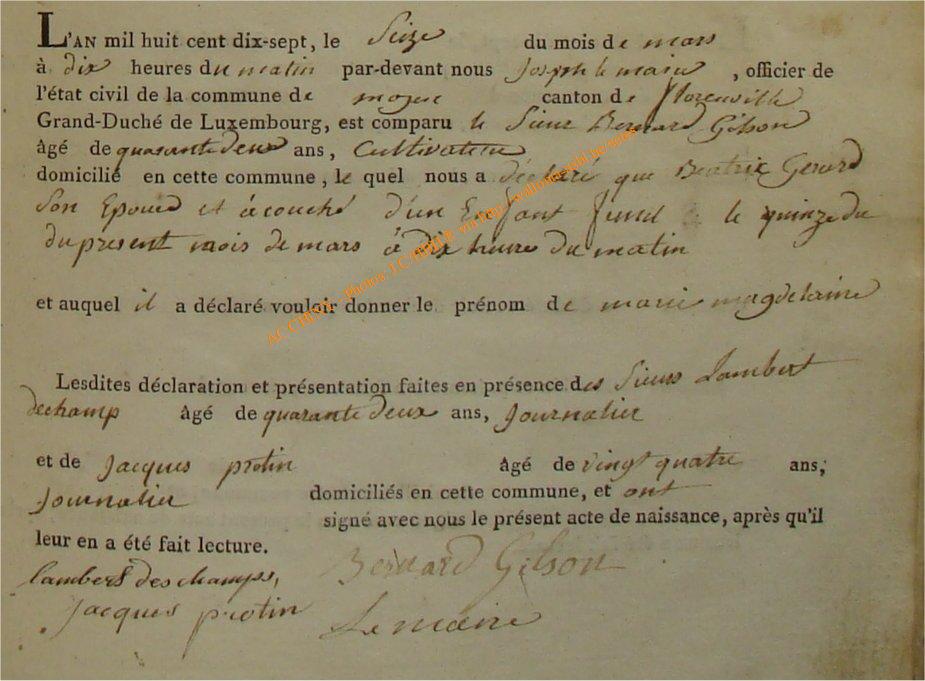 L'AN mil huit cent dix-sept, le Seize du mois de mars
à dix heures du matin par-devant nous Joseph le maire, officier de
l'état civil de la commune de moyen canton de florenville
Grand-Duché de Luxembourg, est comparu le Sieur Bernard Gilson
âgé de quarante deux ans, Cultivateur
domicilié en cette commune, le quel nous a déclaré que Beatrix Gerard
Son Epouse et acouché d'un Enfant le quinze du
du present mois de mars à dix heure du matin
et auquel il a déclaré vouloir donner le prénom de marie magdelaine
Lesdites déclaration et présentation faites en présence des Sieurs Lambert
dechamp âgé de quarante deux ans, Journalier
et de Jacques protin âgé de vingt quatre ans,
Journalier domiciliés en cette commune, et ont
signé avec nous le présent acte de naissance, après qu'il
leur en a été fait lecture.
lambert des champs,
Bernard Gilson
Jacques protin
Le maire
AC CHINY - Photos